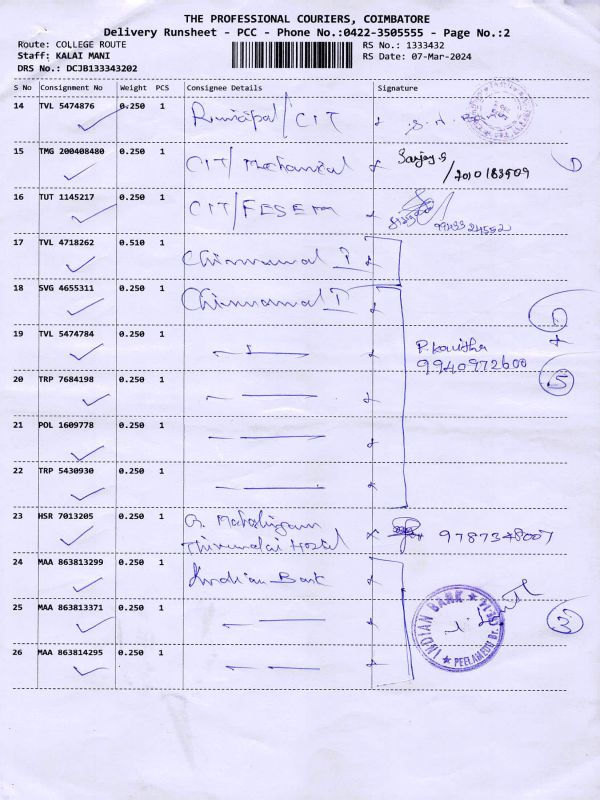 THE PROFESSIONAL COURIERS, COIMBATORE
Delivery Runsheet - PCC - Phone No.:0422-3505555 - Page No.:2
Route: COLLEGE ROUTE
RS No.: 1333432
Staff: KALAI MANI
RS Date: 07-Mar-2024
DRS No.: DCJB133343202
S No Consignment No Weight PCS Consignee Details Signature
14 TVL 5474876 0.250 1 /CIT
15 TMG 200408480 0.250 1 CIT/Mechanical Sanjay.S
/7010183509
16 TUT 1145217 0.250 1 CIT/
17 TVL 4718262 0.510 1 I
18 SVG 4655311 0.250 1 I
19 TVL 5474784 0.250 1
9940972600
5
20 TRP 7684198 0.250 1
21 POL 1609778 0.250 1
22 TRP 5430930 0.250 1
23 HSR 7013205 0.250 1 G. 9787348007
Hostel
24 MAA 863813299 0.250 1 Indian Bank
25 MAA 863813371 0.250 1
INDIAN BANK
PEELAMEDU Br.
3
26 MAA 863814295 0.250 1